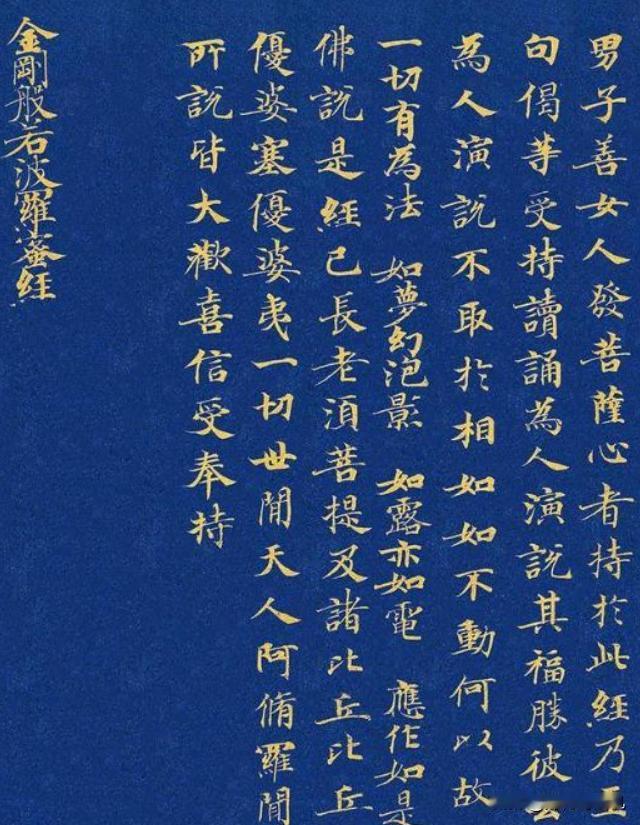 男子善女人發菩薩心者持於此經乃至
句偈等受持讀誦為人演說其福勝彼云
為人演說不取於相如如不動何以故
一切有為法 如夢幻泡影 如露亦如電 應作如是
佛說是經已長老須菩提及諸比丘比丘
優婆塞優婆夷一切世間天人阿脩羅聞
所說皆大歡喜信受奉持
金剛般若波羅蜜經